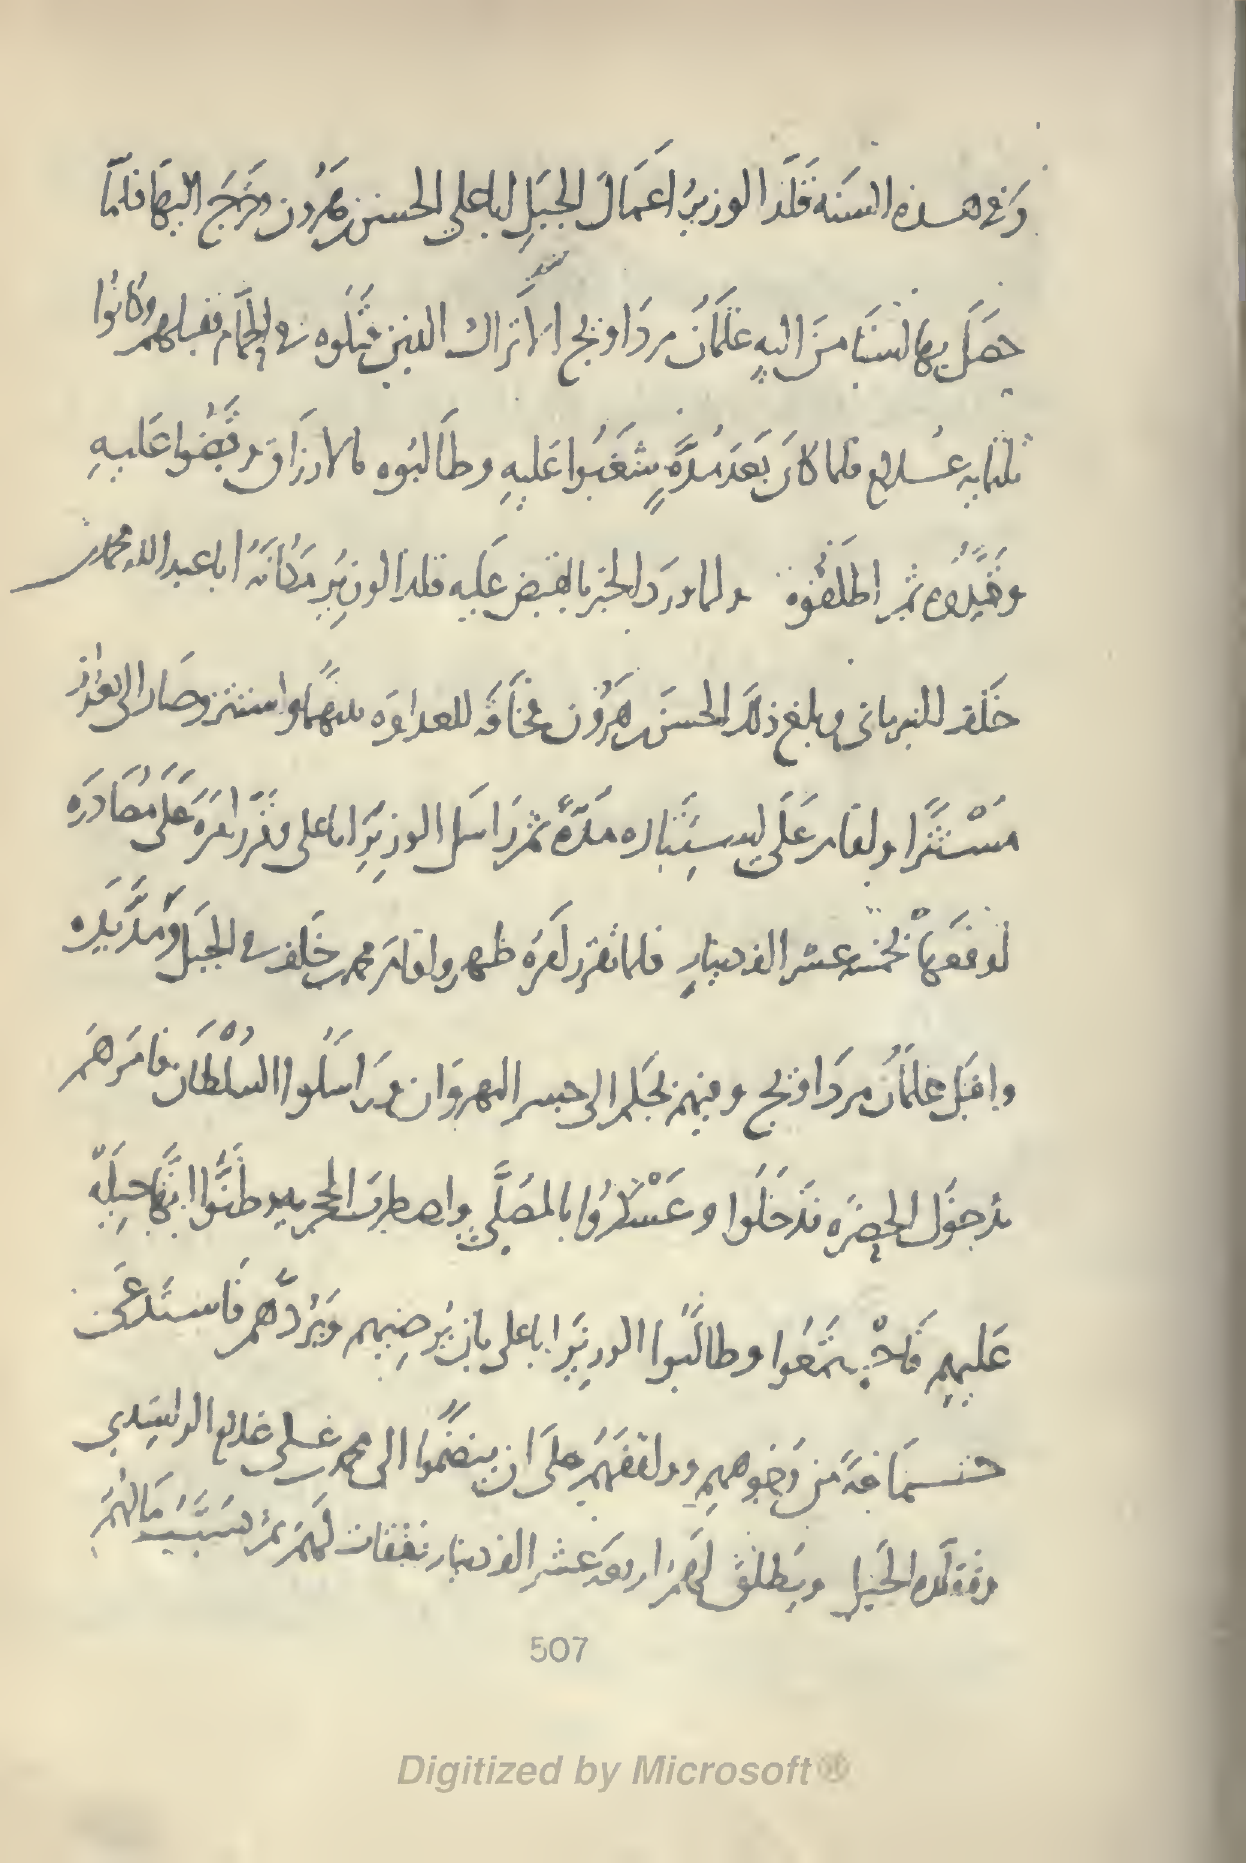 وفى هذه السنه قلد الوزير اعمال الجبل ابا على الحسن بن هرون وخرج اليها فلما
حصل بها استامن اليه غلمان مرداويج الاتراك الذين قتلوه فى الحمام فقبلهم وكانوا
ثلثمايه غلام فلما كان بعد مدة شغبوا عليه وطالبوه بالارزاق وقبضوا عليه
وقيدوه ثم اطلقوه ولما ورد الخبر بالقبض عليه قلد الوزير مكانه ابا عبد الله محمد بن
خلف النيرمانى وبلغ ذلك الحسن بن هرون مخافه للعداوه بينهما واستتر وصار الى بغداذ
مستترا واقام على استتاره مدة ثم راسل الوزير ابا على وقرر امره على مصادره
اوقعها بخمسه عشر الف دينار فلما تقرر امره ظهر واقام محمد بن خلف فى الجبل ومد يده
واقبل غلمان مرداويج وفيهم بجكم الى جسر النهروان وراسلوا السلطان فامرهم
بدخول الحضره فدخلوا وعسكروا بالمصلى واضطربت الحجريه وظنوا انها حيله
عليهم فاجتمعوا وطالبوا الوزير ابا على بان يرضيهم ويردهم فاستدعى
جماعة من وجوههم ووافقهم على ان ينضموا الى محمد بن على غلام الراشدى
وقد قلده الجبل ويطلق لهم اربعه عشر الف دينار نفقات لهم ثم يسبب مالهم
507
Digitized by Microsoft®